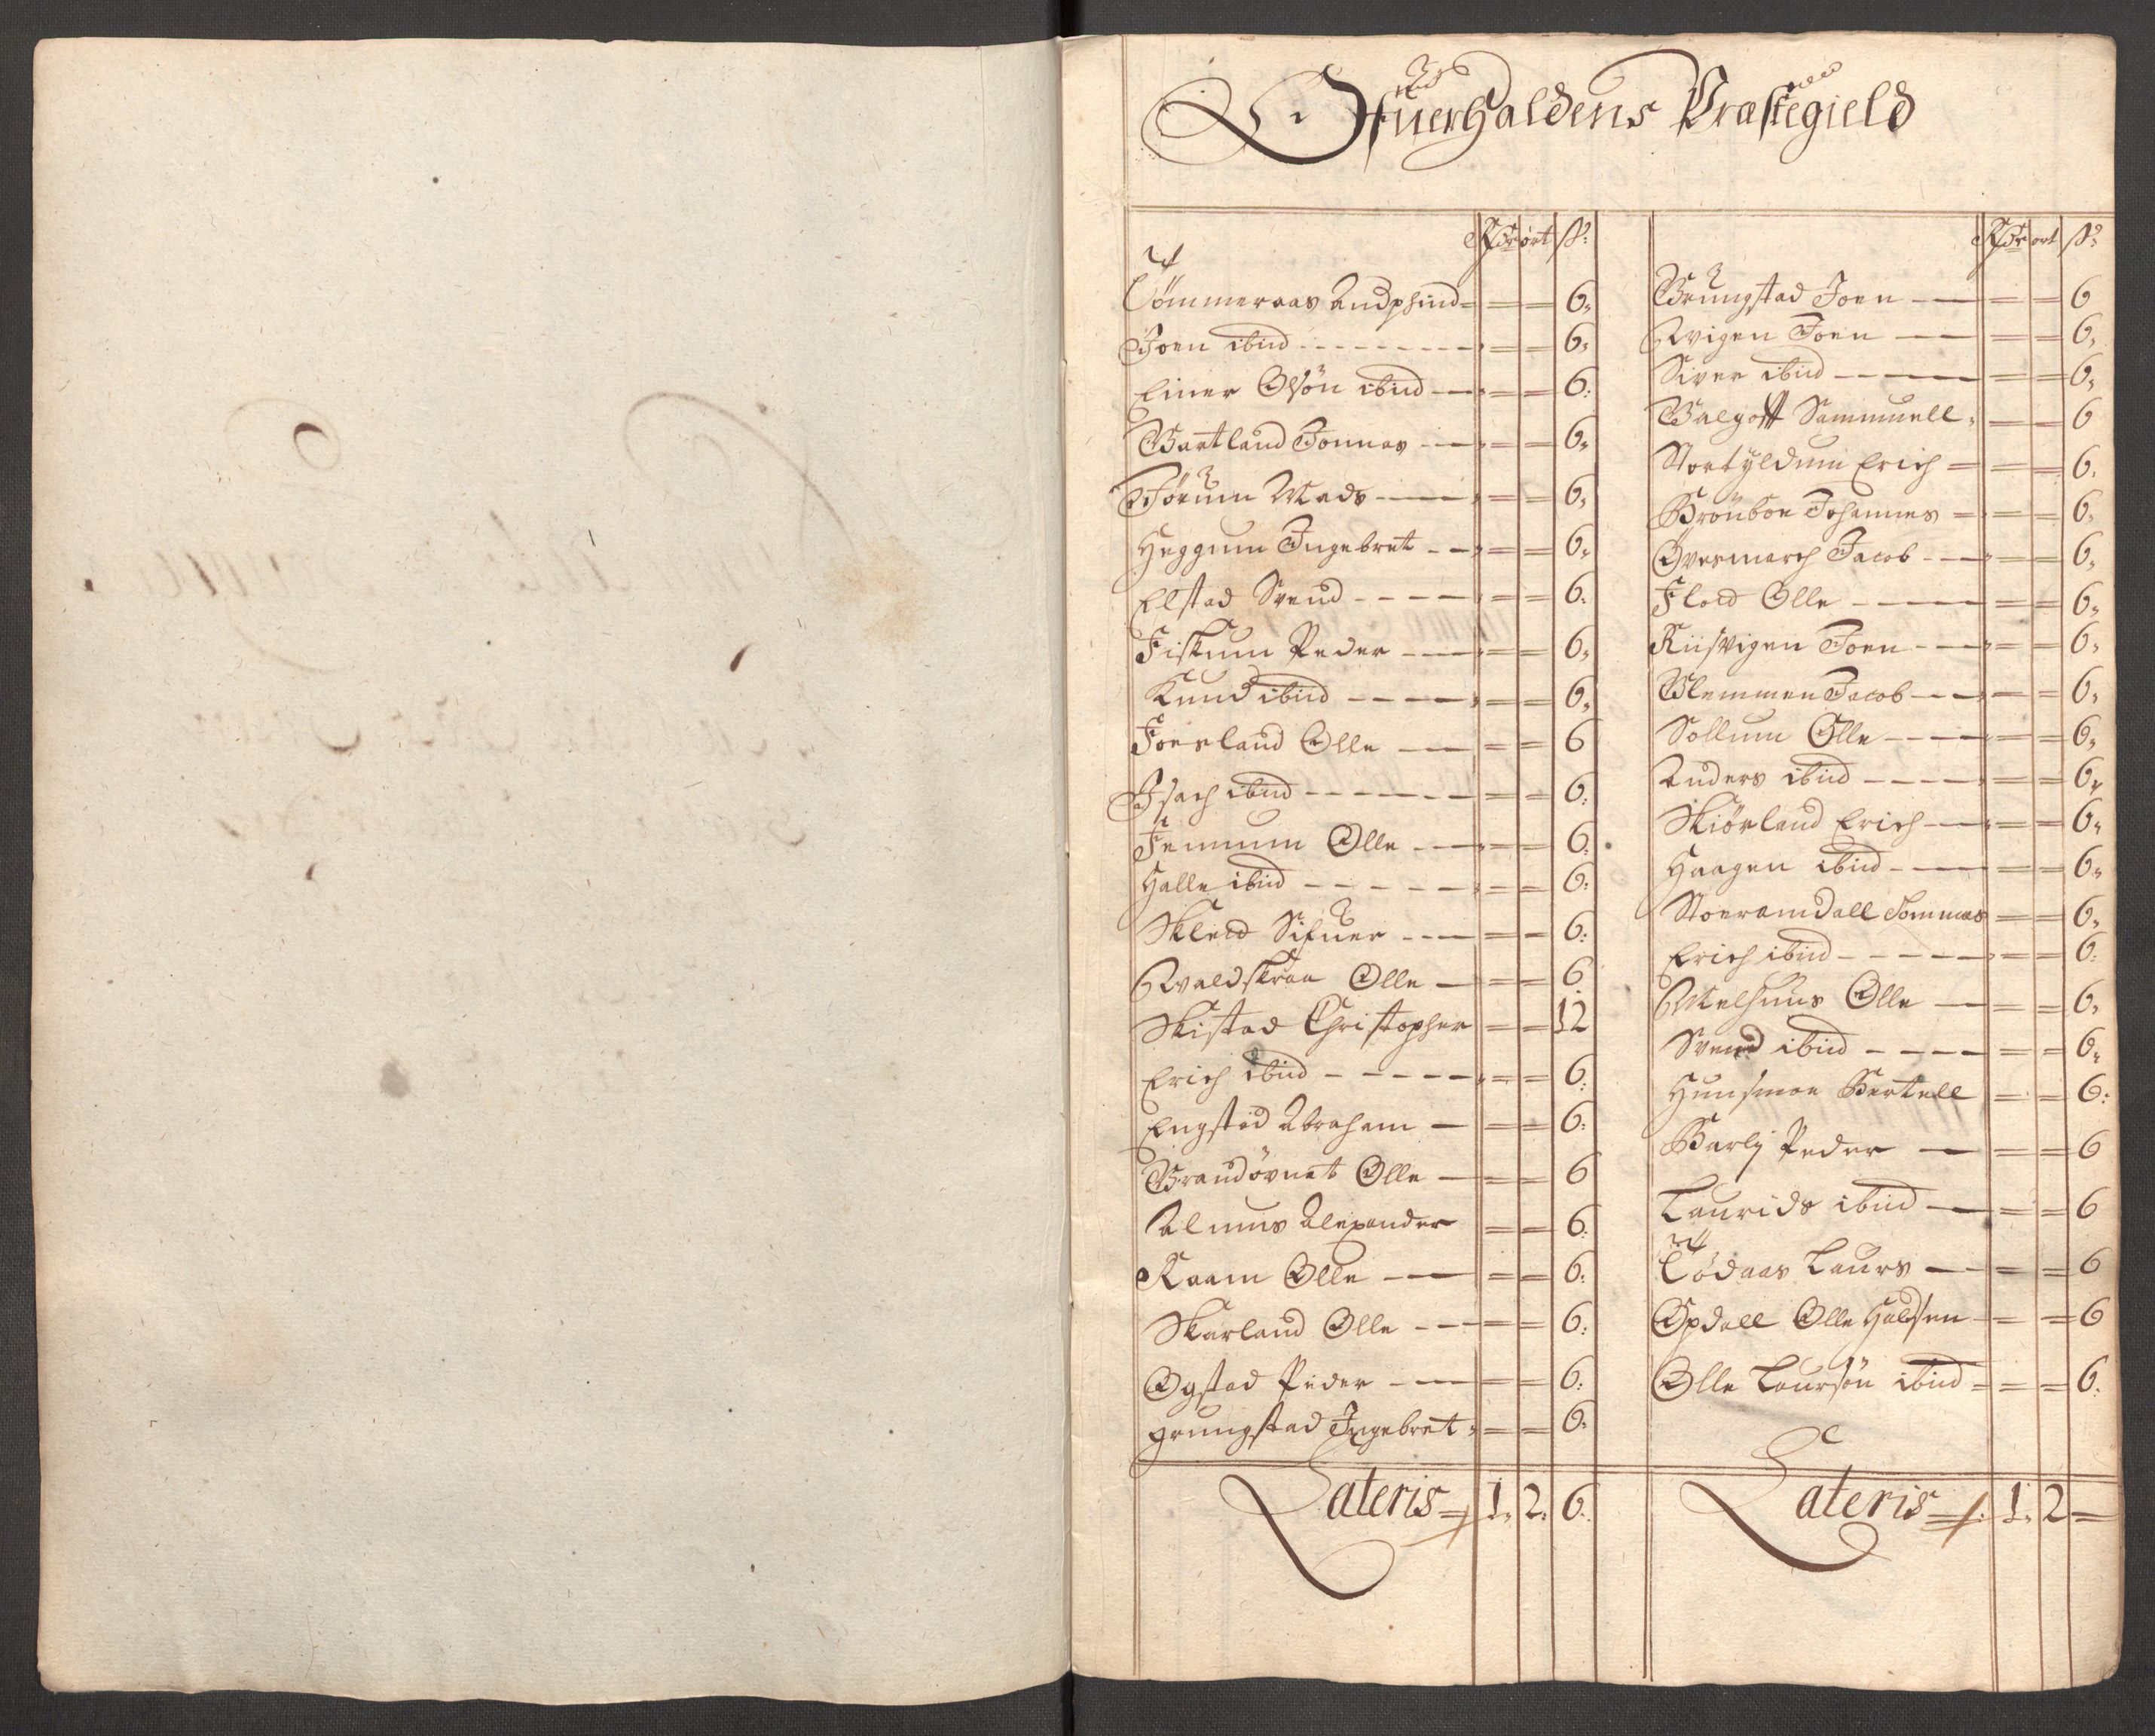 Ofuerhaldens Præstegield
Rdr ort ß:
Tömmeraas Andphind = = 6:
Joen ibid = = 6:
Einer Olsön ibid = = 6:
Bartland Jonnas = = 6:
Törum Mads = = 6:
Heggum Ingebret = = 6:
Elstad Svend = = 6:
Fiskum Peder = = 6:
Knud ibid = = 6:
Foesland Olle = = 6
Isach ibid = = 6:
Femnum Olle = = 6:
Halle ibid = = 6:
Skleed Sifuer = = 6:
Qvaldskraa Olle = = 6
Skistad Christopher = = 12
Erich ibid = = 6:
Engstad Abraham = = 6:
Brandövnet Olle = = 6
Almus Alexander = = 6:
Raam Olle = = 6:
Skarland Olle = = 6:
Ogstad Peder = = 6:
Grungstad Ingebret = = 6:
Lateris 1. 2. 6:
Rdr ort ß:
Brungstad Joen = = 6
Qvigen Joen = = 6:
Siver ibid = = 6:
Walgost Sammuell = = 6
Stortyldum Erich = = 6:
Brönboe Johannes = = 6:
Overmarch Jacob = = 6:
Floed Olle = = 6:
Riisvigen Joen = = 6:
Blemmen Jacob = = 6:
Sollum Olle = = 6:
Anders ibid = = 6:
Skiörland Erich = = 6:
Haagen ibid = = 6:
Storamdall Tommas = = 6:
Erich ibid = = 6:
Melhuus Olle = = 6:
Svend ibid = = 6:
Hunsmoe Bertell = = 6:
Barlj Peder = = 6
Laurids ibid = = 6
Tödaas Laurs = = 6
Opdall Olle Haldsen = = 6
Olle Laursön ibid = = 6:
Lateris 1. 2 =